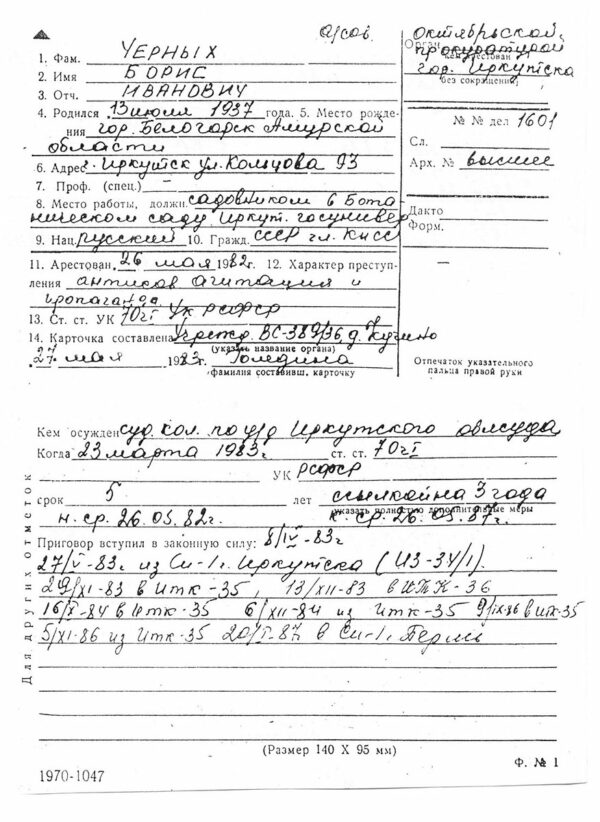 а/сов.
1. Фам. ЧЕРНЫХ
2. Имя БОРИС
3. Отч. ИВАНОВИЧ
Октябрьской
прокуратурой
Кем арестован
гор. Иркутска
без сокращений
4. Родился 13 июля 1937 года. 5. Место рожде-
ния гор. Белогорск Амурской
области
№ № дел 1601
Сл.
6. Адрес г. Иркутск ул. Кольцова 93
Арх. № высшее
7. Проф. (спец.)
8. Место работы, должн. садовником в Бота-
ническом саду Иркут. госунивер
9. Нац. русский 10. Гражд. СССР чл. КПСС
Дакто
Форм.
11. Арестован 26 мая 1982 г. 12. Характер преступ-
ления антисов агитация и
пропаганда
13. Ст. ст. УК 70 ч I УК РСФСР
14. Карточка составлена Учрежд. ВС-389/36 д. Кучино
(указать название органа)
27 мая 1983 г.
фамилия составивш. карточку
Отпечаток указательного
пальца правой руки
Кем осужден суд. кол. по у/д Иркутского облсуда
Когда 23 марта 1983 г. ст. ст. 70 ч I
УК РСФСР
срок 5 лет ссылкой на 3 года
указать полностью дополнительные меры
н. ср. 26.05.82 г. к. ср. 26.05.87 г.
Приговор вступил в законную силу: 8/IV-83 г
27/V-83 г. из Си-1 г. Иркутска (ИЗ-34/1).
29/XI-83 в итк-35, 13/XII-83 в ИТК-36
16/I-84 в итк-35 6/XII-84 из итк-35 9/IX-86 в итк-35
5/XI-86 из итк-35 20/I-87 в Си-1 г. Пермь
Для других отметок
(Размер 140 X 95 мм)
Ф. № 1
1970-1047